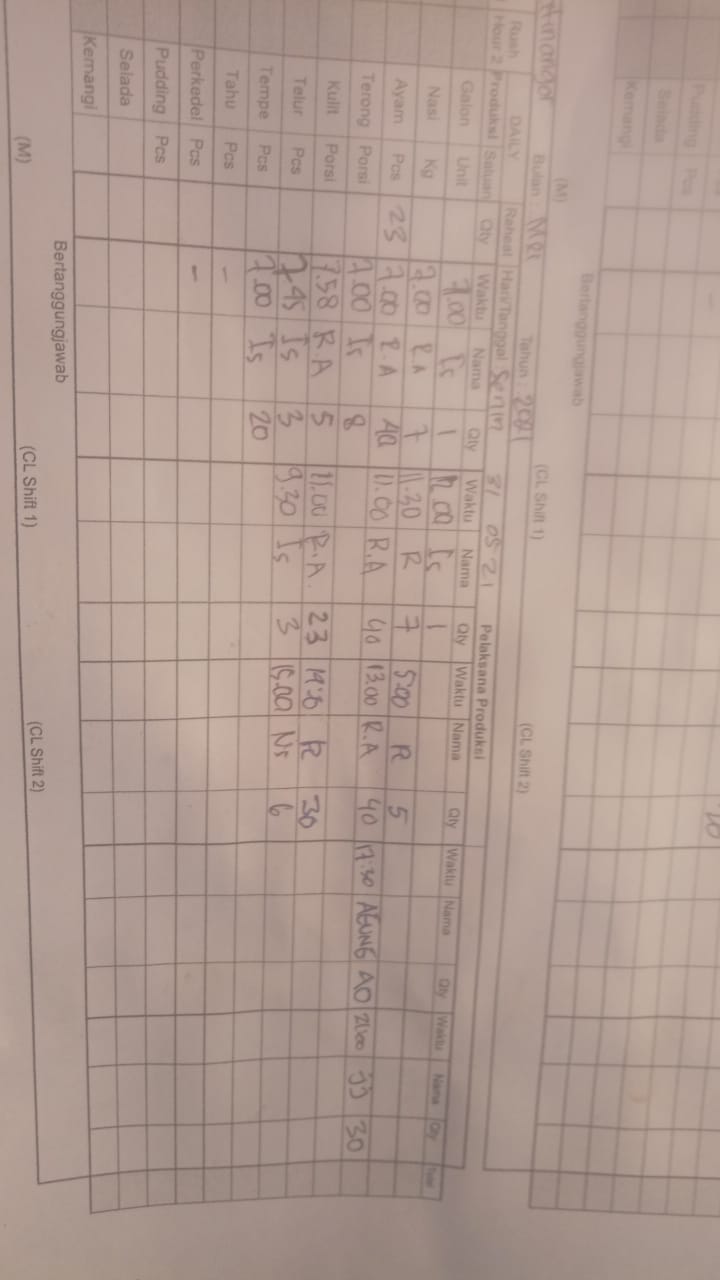 Pudding Pcs
Selada
Kemangi
Bertanggungjawab
(M) (CL Shift 1) (CL Shift 2)
Bulan : Mei Tahun : 2021
Rush Hour 2 DAILY Produksi Satuan Reheat Hari/Tanggal Senin 31 05 21 Pelaksana Produksi
Qty Waktu Nama Qty Waktu Nama Qty Waktu Nama Qty Waktu Nama Qty Waktu Nama Qty
Galon Unit 7.00 Is 1 12.00 Is 1
Nasi Kg 7.00 R.A 7 11.30 R 7 15.00 R 5
Ayam Pcs 23 7.00 R.A 40 11.00 R.A 40 13.00 R.A 40 17.30 AGUNG 40 21.00 30
Terong Porsi 7.00 Is 8
Kulit Porsi 7.58 R.A 5 11.00 R.A. 23 R 30
Telur Pcs 7.45 Is 3 9.30 Is 3 15.00 Nr 6
Tempe Pcs 7.00 Is 20
Tahu Pcs -
Perkedel Pcs -
Pudding Pcs
Selada
Kemangi
Bertanggungjawab
(M) (CL Shift 1) (CL Shift 2)